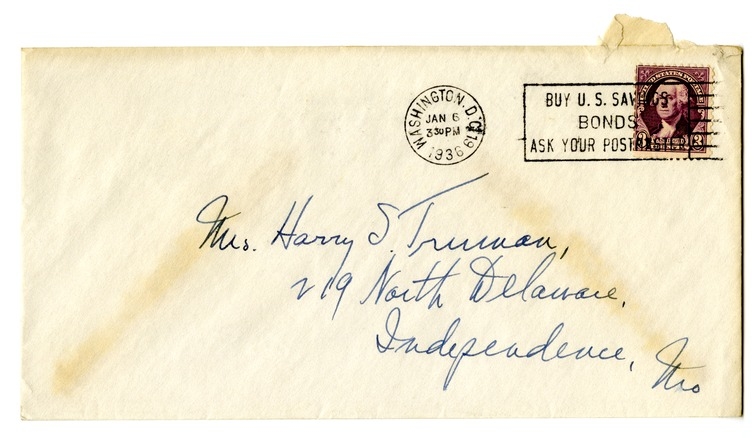 WASHINGTON, D.C. 19
JAN 6
3 30 PM
1936
BUY U.S. SAVINGS
BONDS
ASK YOUR POSTMASTER
Mrs. Harry S. Truman,
219 North Delaware.
Independence, Mo